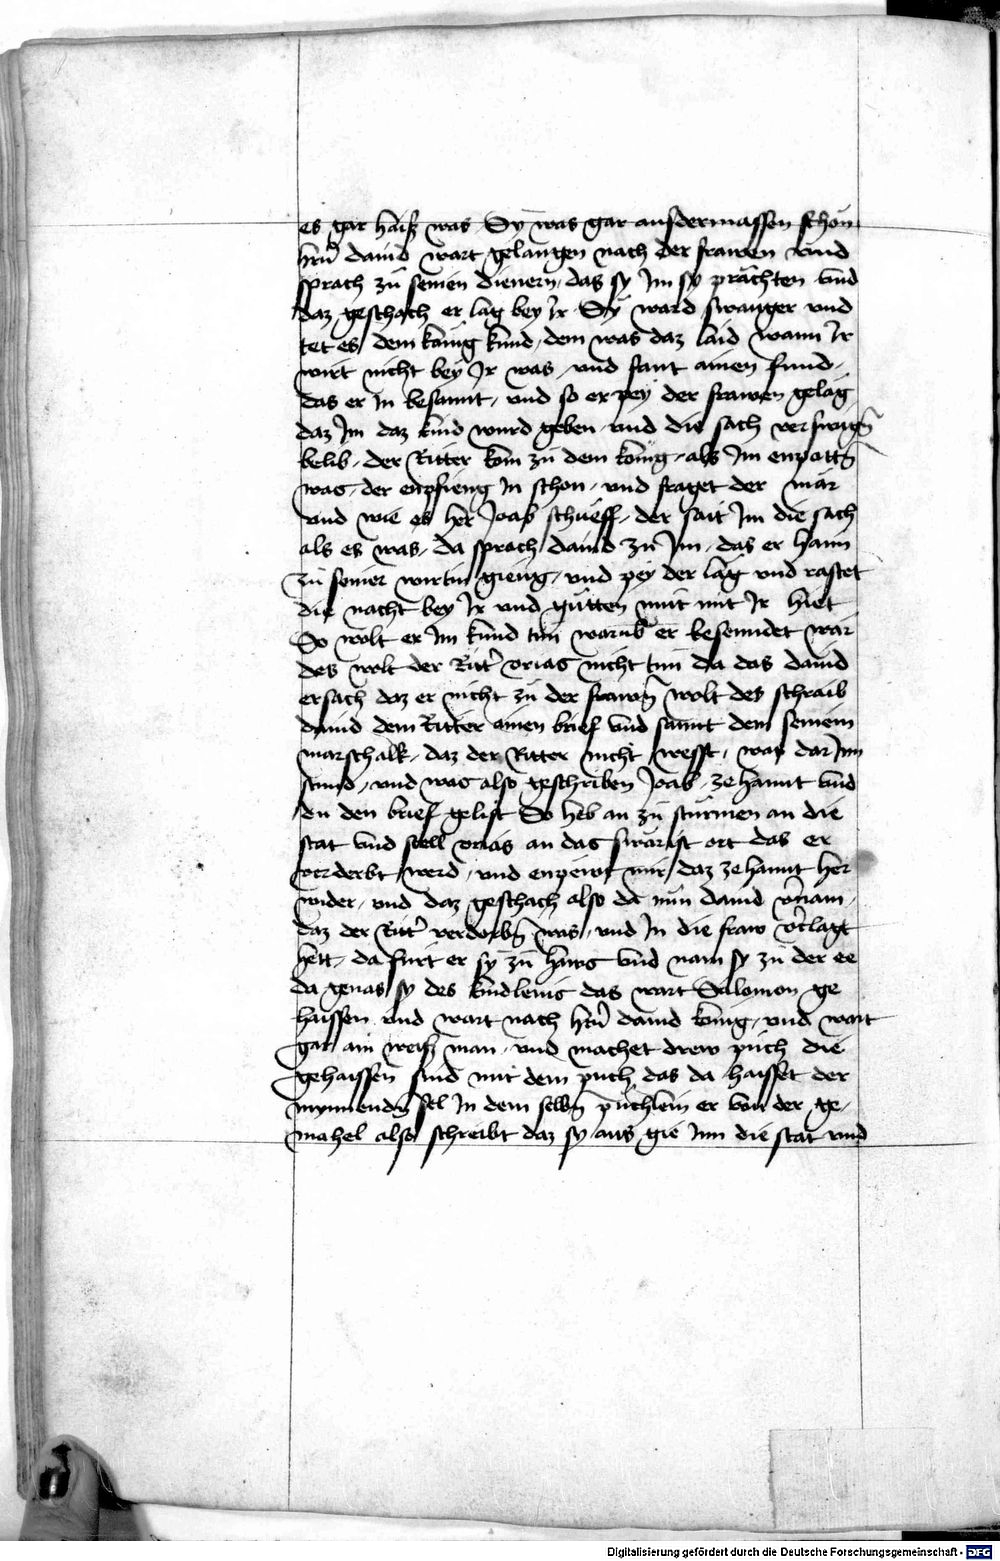 es gar haiß was Sy was gar ausdermassen schön
hr̄n dauid wart gelangen nach der frawen vnd
sprach zu seinen dienern das sy Im sy prächten vnd
daz geschach er lag bey Ir Sy ward swanger vnd
tet es dem künig kund dem was daz laid wann Ir
wirt nicht bey Ir was vnd fant ainen fund
das er In besannt vnd so er pey der frawen geläg
daz Im daz kind wurd geben vnd die sach verswign̄
belib der Ritter kom zu dem künig als Im enpottn̄
was der enpfieng In schon vnd fraget der mär
vnd wie es her Joab schüeff der sait Im die sach
als es was da sprach dauid zu Im das er haim
zu seiner wirtin gieng vnd pey der läg vnd rastet
die nacht bey Ir vnd gütten müt mit Ir hiet
So wolt er Im kund tun warūb er besenndet wär
des wolt der Ritt' vrias nicht tun da das dauid
ersach daz er nicht zu der frawn̄ wolt des schraib
dauid dem Ritter ainen brief vnd sannt dem seinem
marschalk daz der Ritter nicht wesst was dar Inn
stund vnd was also geschriben Joab zehannt vnd
du den brief gelist So heb an zu stürmen an die
stat vnd stell vrias an das swärist ort das er
verderbt werd vnd enpewt mir daz zehannt her
wider vnd daz geschach also da nun dauid v'nam
daz der Ritt' verdorbn̄ was vnd In die fraw v'clagt
hett da fürt er sy zu haws vnd nam sy zu der ee
da genas sy des kindleins das wart Salomon ge
haissen vnd wart nach hr̄n dauid künig vnd wart
gar ain weiß man vnd machet drew püch die
gehaissen sind mit dem puch das da haisset der
mynnendn̄ sel In dem selbn̄ püchlein er von der ge
mahel also schreibt daz sy aus gie Inn die stat vnd
Digitalisierung gefördert durch die Deutsche Forschungsgemeinschaft - DFG